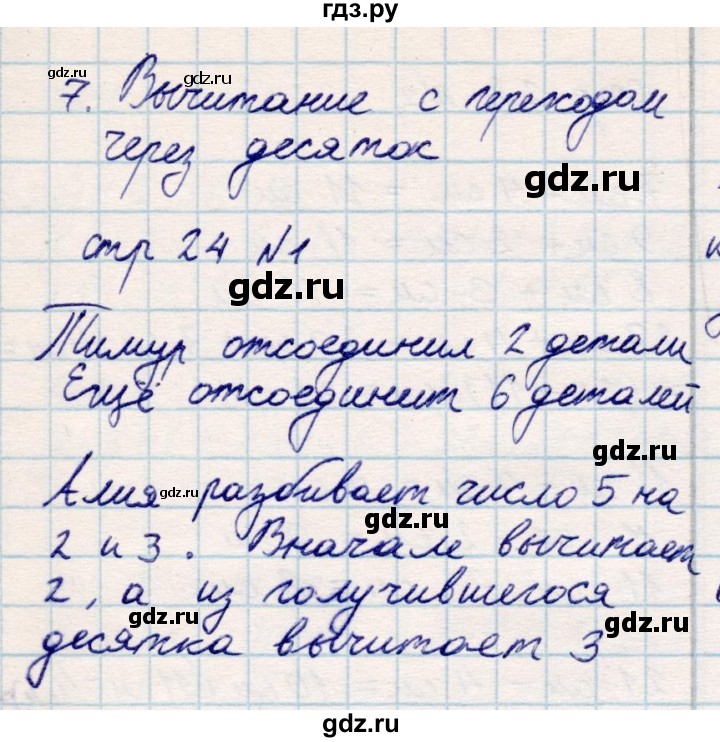 гдз.ру
gdz.ru
7. Вычитание с переходом
gdz.ru
через десяток
gdz.ru
стр 24 №1
gdz.ru
Тимур отсоединил 2 детали
Ещё отсоединит 6 деталей
gdz.ru
gdz.ru
Алия разбивает число 5 на
gdz.ru
2 и 3. Вначале вычитает
2, а из получившегося
gdz.ru
десятка вычитает 3
gdz.ru
gdz.ru